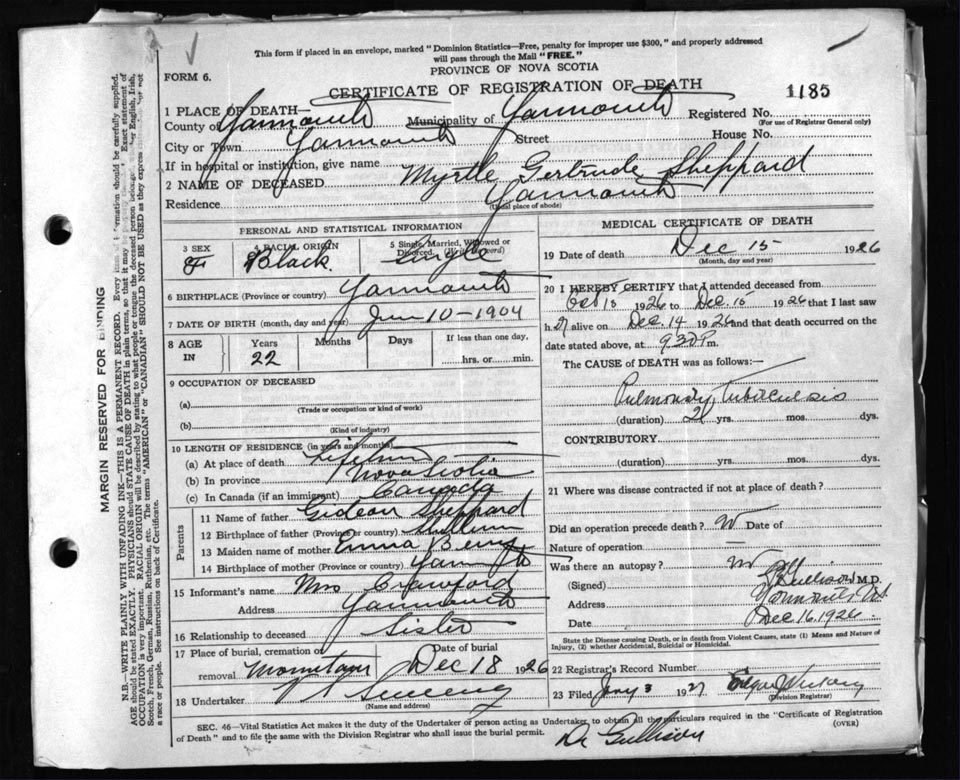 This form if placed in an envelope, marked "Dominion Statistics—Free, penalty for improper use $300," and properly addressed
will pass through the Mail "FREE."
PROVINCE OF NOVA SCOTIA
FORM 6.
CERTIFICATE OF REGISTRATION OF DEATH
1185
1 PLACE OF DEATH—
County of Yarmouth Municipality of Yarmouth Registered No.
(For use of Registrar General only)
City or Town Yarmouth Street House No.
If in hospital or institution, give name
2 NAME OF DECEASED Myrtle Gertrude Sheppard
Residence Yarmouth
(Usual place of abode)
PERSONAL AND STATISTICAL INFORMATION
3 SEX F 4 RACIAL ORIGIN Black 5 Single, Married, Widowed or Divorced (Write the word) Single
6 BIRTHPLACE (Province or country) Yarmouth
7 DATE OF BIRTH (month, day and year) Jun 10-1904
8 AGE IN Years 22 Months Days If less than one day, hrs. or min.
9 OCCUPATION OF DECEASED
(a)
(Trade or occupation or kind of work)
(b)
(Kind of industry)
10 LENGTH OF RESIDENCE (in years and months)
(a) At place of death Lifetime
(b) In province Nova Scotia
(c) In Canada (if an immigrant) Canada
Parents
11 Name of father Gideon Sheppard
12 Birthplace of father (Province or country)
13 Maiden name of mother Emma Berry
14 Birthplace of mother (Province or country) Yarmouth
15 Informant's name Mrs Crawford
Address Yarmouth
16 Relationship to deceased Sister
17 Place of burial, cremation or removal Mountain Date of burial Dec 18 1926
18 Undertaker Sweeny
(Name and address)
MEDICAL CERTIFICATE OF DEATH
19 Date of death Dec 15 1926
(Month, day and year)
20 I HEREBY CERTIFY that I attended deceased from
Oct 15 1926 to Dec 15 1926 that I last saw
h er alive on Dec. 14 1926 and that death occurred on the
date stated above, at 930 P m.
The CAUSE of DEATH was as follows:—
Pulmonary Tuberculosis
(duration) 2 yrs. mos. dys.
CONTRIBUTORY
(duration) yrs. mos. dys.
21 Where was disease contracted if not at place of death?
Did an operation precede death? No Date of
Nature of operation —
Was there an autopsy? No
(Signed) Gullison M.D.
Address Yarmouth, N.S
Date Dec 16, 1926
State the Disease causing Death, or in death from Violent Causes, state (1) Means and Nature of
Injury, (2) whether Accidental, Suicidal or Homicidal.
22 Registrar's Record Number
23 Filed Jany 3 1927
(Division Registrar)
SEC. 46—Vital Statistics Act makes it the duty of the Undertaker or person acting as Undertaker to obtain all the particulars required in the "Certificate of Registration
of Death" and to file the same with the Division Registrar who shall issue the burial permit.
(OVER)
Dr Gullison
MARGIN RESERVED FOR BINDING
N.B.—WRITE PLAINLY WITH UNFADING INK—THIS IS A PERMANENT RECORD. Every item of information should be carefully supplied.
AGE should be stated EXACTLY. PHYSICIANS should STATE CAUSE OF DEATH in plain terms, so that it may be properly Exact statement of
OCCUPATION is very important. RACIAL ORIGIN will be described by stating to what people or tongue the deceased person belonged, whether English, Irish,
Scotch, French, German, Russian, Ruthenian, etc. The terms "AMERICAN" or "CANADIAN" SHOULD NOT BE USED as they express or not
a race or people. See instructions on back of Certificate.